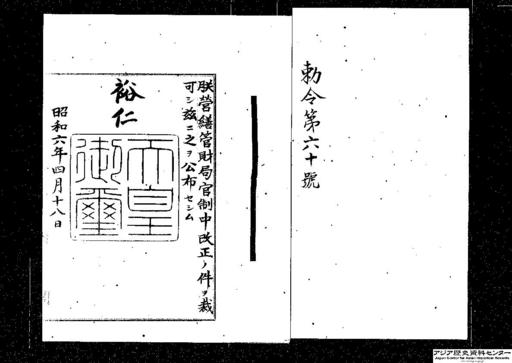 勅令第六十號
朕營繕管財局官制中改正ノ件ヲ裁
可シ茲ニ之ヲ公布セシム
裕仁
天皇
御璽
昭和六年四月十八日
アジア歴史資料センター
Japan Center for Asian Historical Records